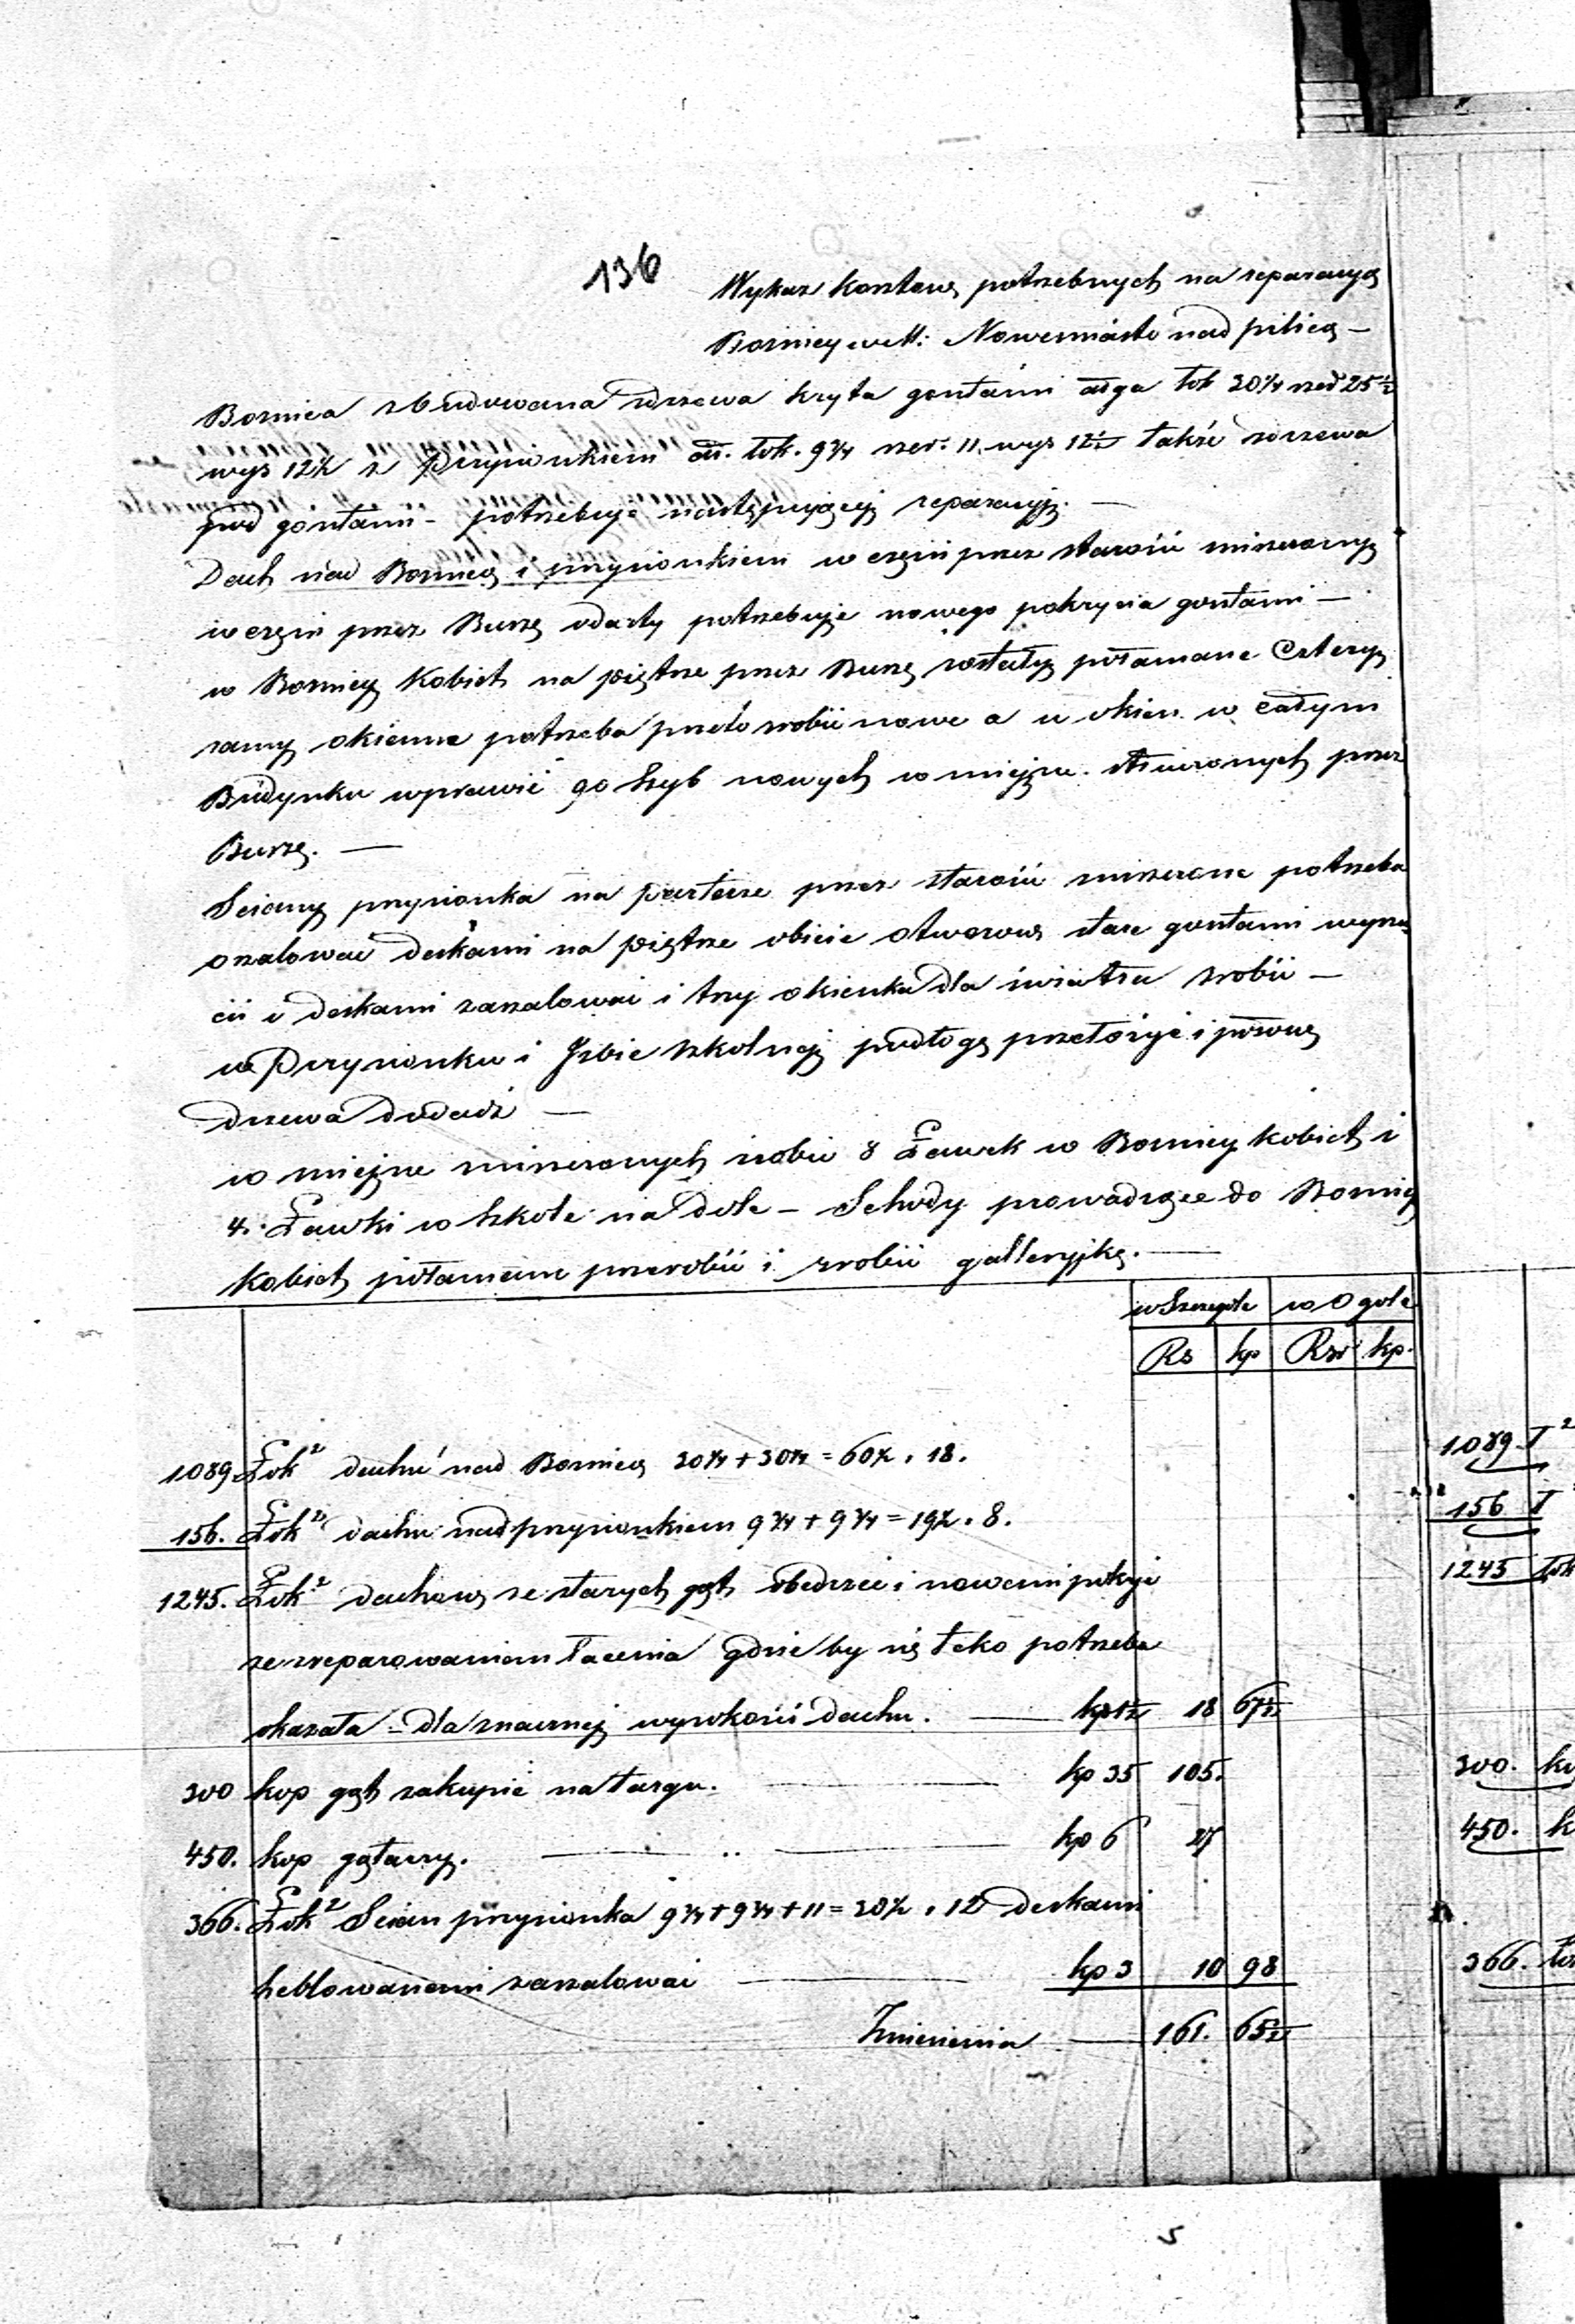 136
Wykaz kosztow potrzebnych na reparacyą
Boznicy w M: Nowemiasto nad pilicą —
Boznica zbudowana zdrzewa kryta gontami długa łok 30¼ szer 25½
wys 12½ z Przysionkiem dłu. łok. 9¾ szer. 11. wys 12½ także zdrzewa
pod gontami - potrzebuje następującej reparacyj. —
Dach nad Boznicą i przysionkiem w części przez starość zniszczony
w części przez Burzę odarty potrzebuje nowego pokrycia gontami —
w Boznicy Kobiet na piętrze przez Burzę zostały połamane Cztery
ramy okienne potrzeba przeto zrobić nowe a u okien w całym
Budynku wprawić 90 szyb nowych w miejsce stłuczonych przez
Burzę. —
Sciany przysionka na parterze przez starość zniszczone potrzeba
oszalować deskami na piętrze obicie otworow stare gontami wyrzu
cić i deskami zaszalować i trzy okienka dla światła zrobić —
w Przysionku i Izbie szkolnej podłogę przełożyć i połowę
drzewa dodać —
w miejsce zniszczonych zrobić 8 Ławek w Boznicy kobiet i
4. Ławki w szkole na dole — Schody prowadzące do Boznicy
Kobiet połamane przerobić i zrobić galleryjkę. —
w Szczegole | w Ogole
Rs | kp | Rsr | kp.
1089 Łok² dachu nad Boznicą 30¼ + 30¼ = 60½ . 18.
156. Łok² dachu nad przysionkiem 9¾ + 9¾ = 19½ . 8.
1245. Łok² dachow ze starych gąt obedrzeć i nowemi pokryć
ze zreparowaniem łacenia gdzie by się tako potrzeba
okazała - dla znacznej wysokości dachu. — kp 1½ 18 67½
300 kop gąt zakupić na targu. — kp 35 105.
450. kop gątarzy. — kp 6 27
366. Łok² Scian przysionka 9¾ + 9¾ + 11 = 30½ . 12 deskami
heblowanemi zaszalować — kp 3 10 98
Zniesienia — 161. 65½
1089 Ł²
156 Ł
1245 Łok
300. ko
450. k
366. Łok